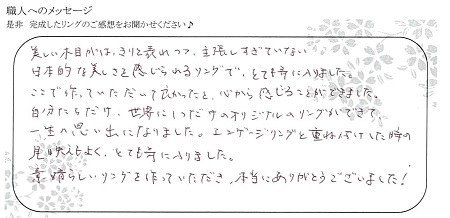 職人へのメッセージ
是非 完成したリングのご感想をお聞かせください♪
美しい木目がはっきりと表れつつ、主張しすぎていない
日本的な美しさを感じられるリングで、とても気に入りました。
ここで作っていただいて良かったと、心から感じることができました。
自分たちだけ、世界に1つだけのオリジナルのリングができて
一生の思い出になりました。エンゲージリングと重ね付けした時の
見映えもよく、とても気に入りました。
素晴らしいリングを作っていただき、本当にありがとうございました!